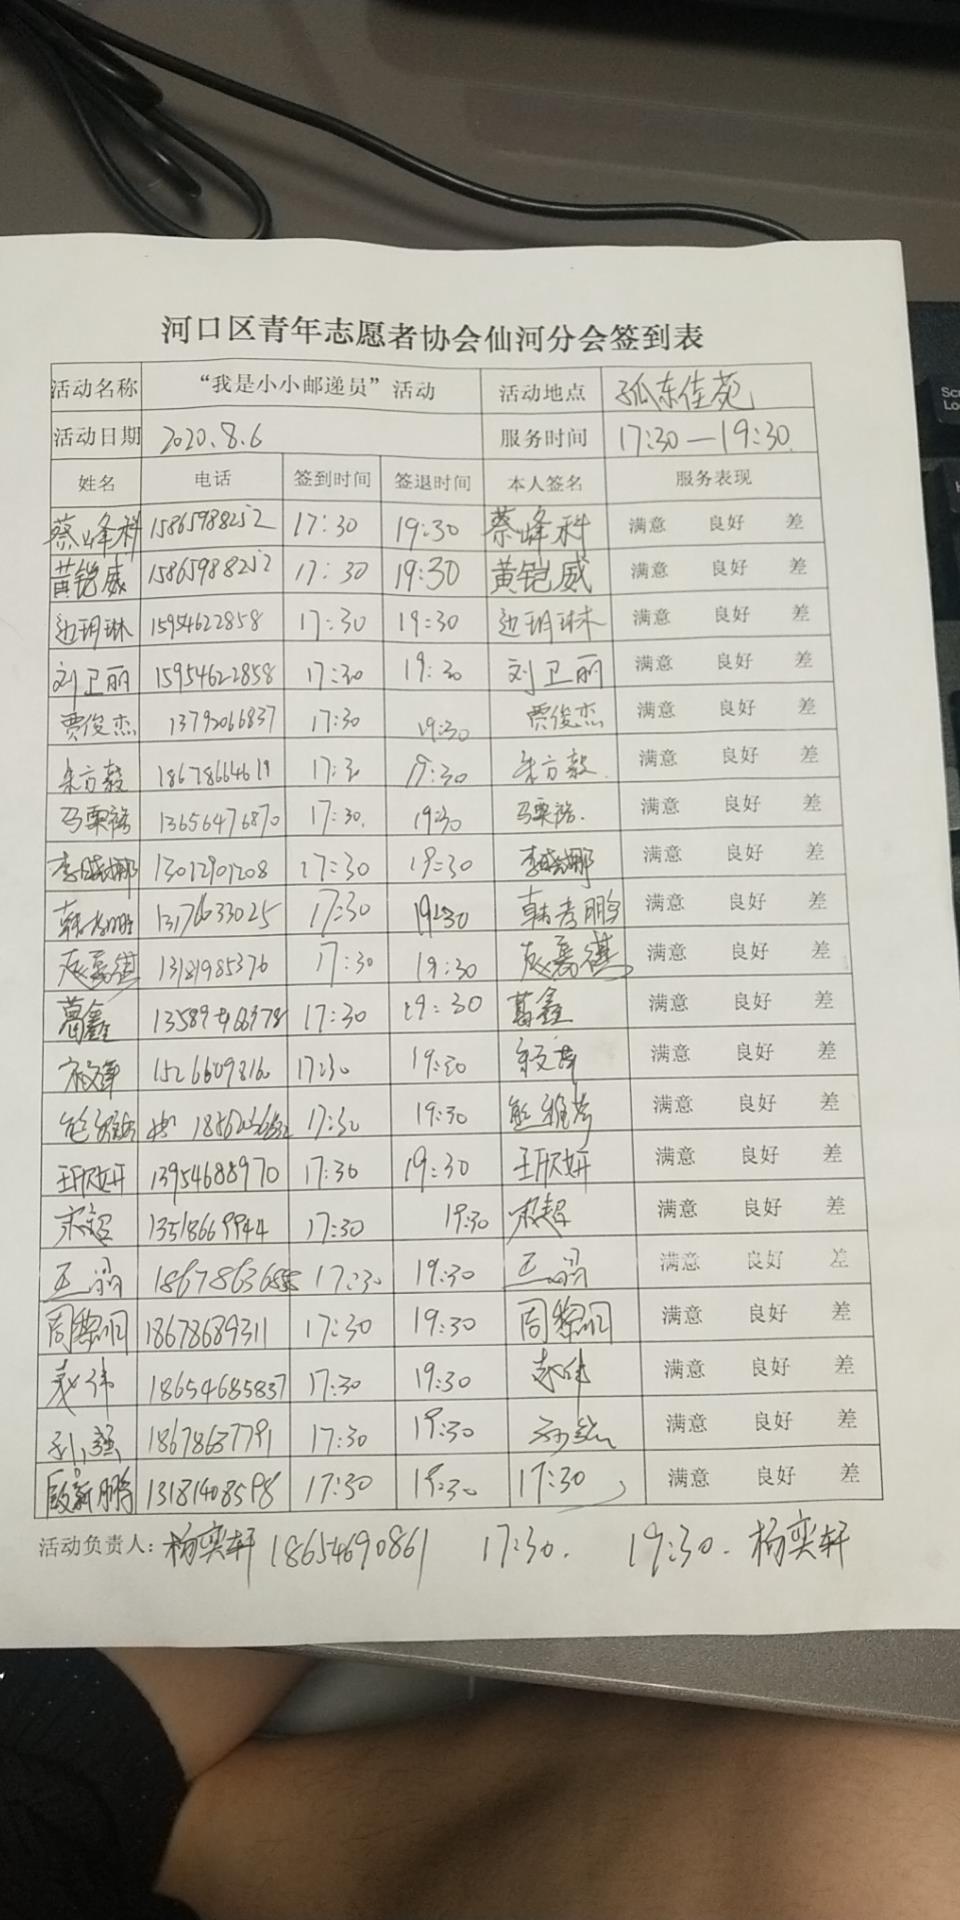 河口区青年志愿者协会仙河分会签到表
活动名称 “我是小小邮递员”活动 活动地点 孤东佳苑
活动日期 2020.8.6 服务时间 17:30—19:30.
姓名 电话 签到时间 签退时间 本人签名 服务表现
蔡峰科 15865988252 17:30 19:30 蔡峰科 满意 良好 差
黄铠威 15865988252 17:30 19:30 黄铠威 满意 良好 差
边玥琳 15954622858 17:30 19:30 边玥琳 满意 良好 差
刘卫丽 15954622858 17:30 19:30 刘卫丽 满意 良好 差
贾俊杰 13792066837 17:30 19:30 贾俊杰 满意 良好 差
朱方毅 18678664619 17:30 19:30 朱方毅 满意 良好 差
马栗裕 13656476870 17:30. 19:30 马栗裕. 满意 良好 差
李晓娜 13012901208 17:30 19:30 李晓娜 满意 良好 差
韩考鹏 13176633025 17:30 19:30 韩考鹏 满意 良好 差
13181985376 17:30 19:30 满意 良好 差
葛鑫 17:30 19:30 葛鑫 满意 良好 差
17:30 19:30 满意 良好 差
17:30 19:30 满意 良好 差
王欣妍 13954688970 17:30 19:30 王欣妍 满意 良好 差
宋超 13518669944 17:30 19:30 宋超 满意 良好 差
17:30 19:30 满意 良好 差
周黎明 18678689311 17:30 19:30 周黎明 满意 良好 差
18654685837 17:30 19:30 满意 良好 差
孙强 18678637791 17:30 19:30 孙强 满意 良好 差
殷新鹏 13181408598 17:30 19:30 17:30 满意 良好 差
活动负责人：杨奕轩 18654690861 17:30. 19:30. 杨奕轩